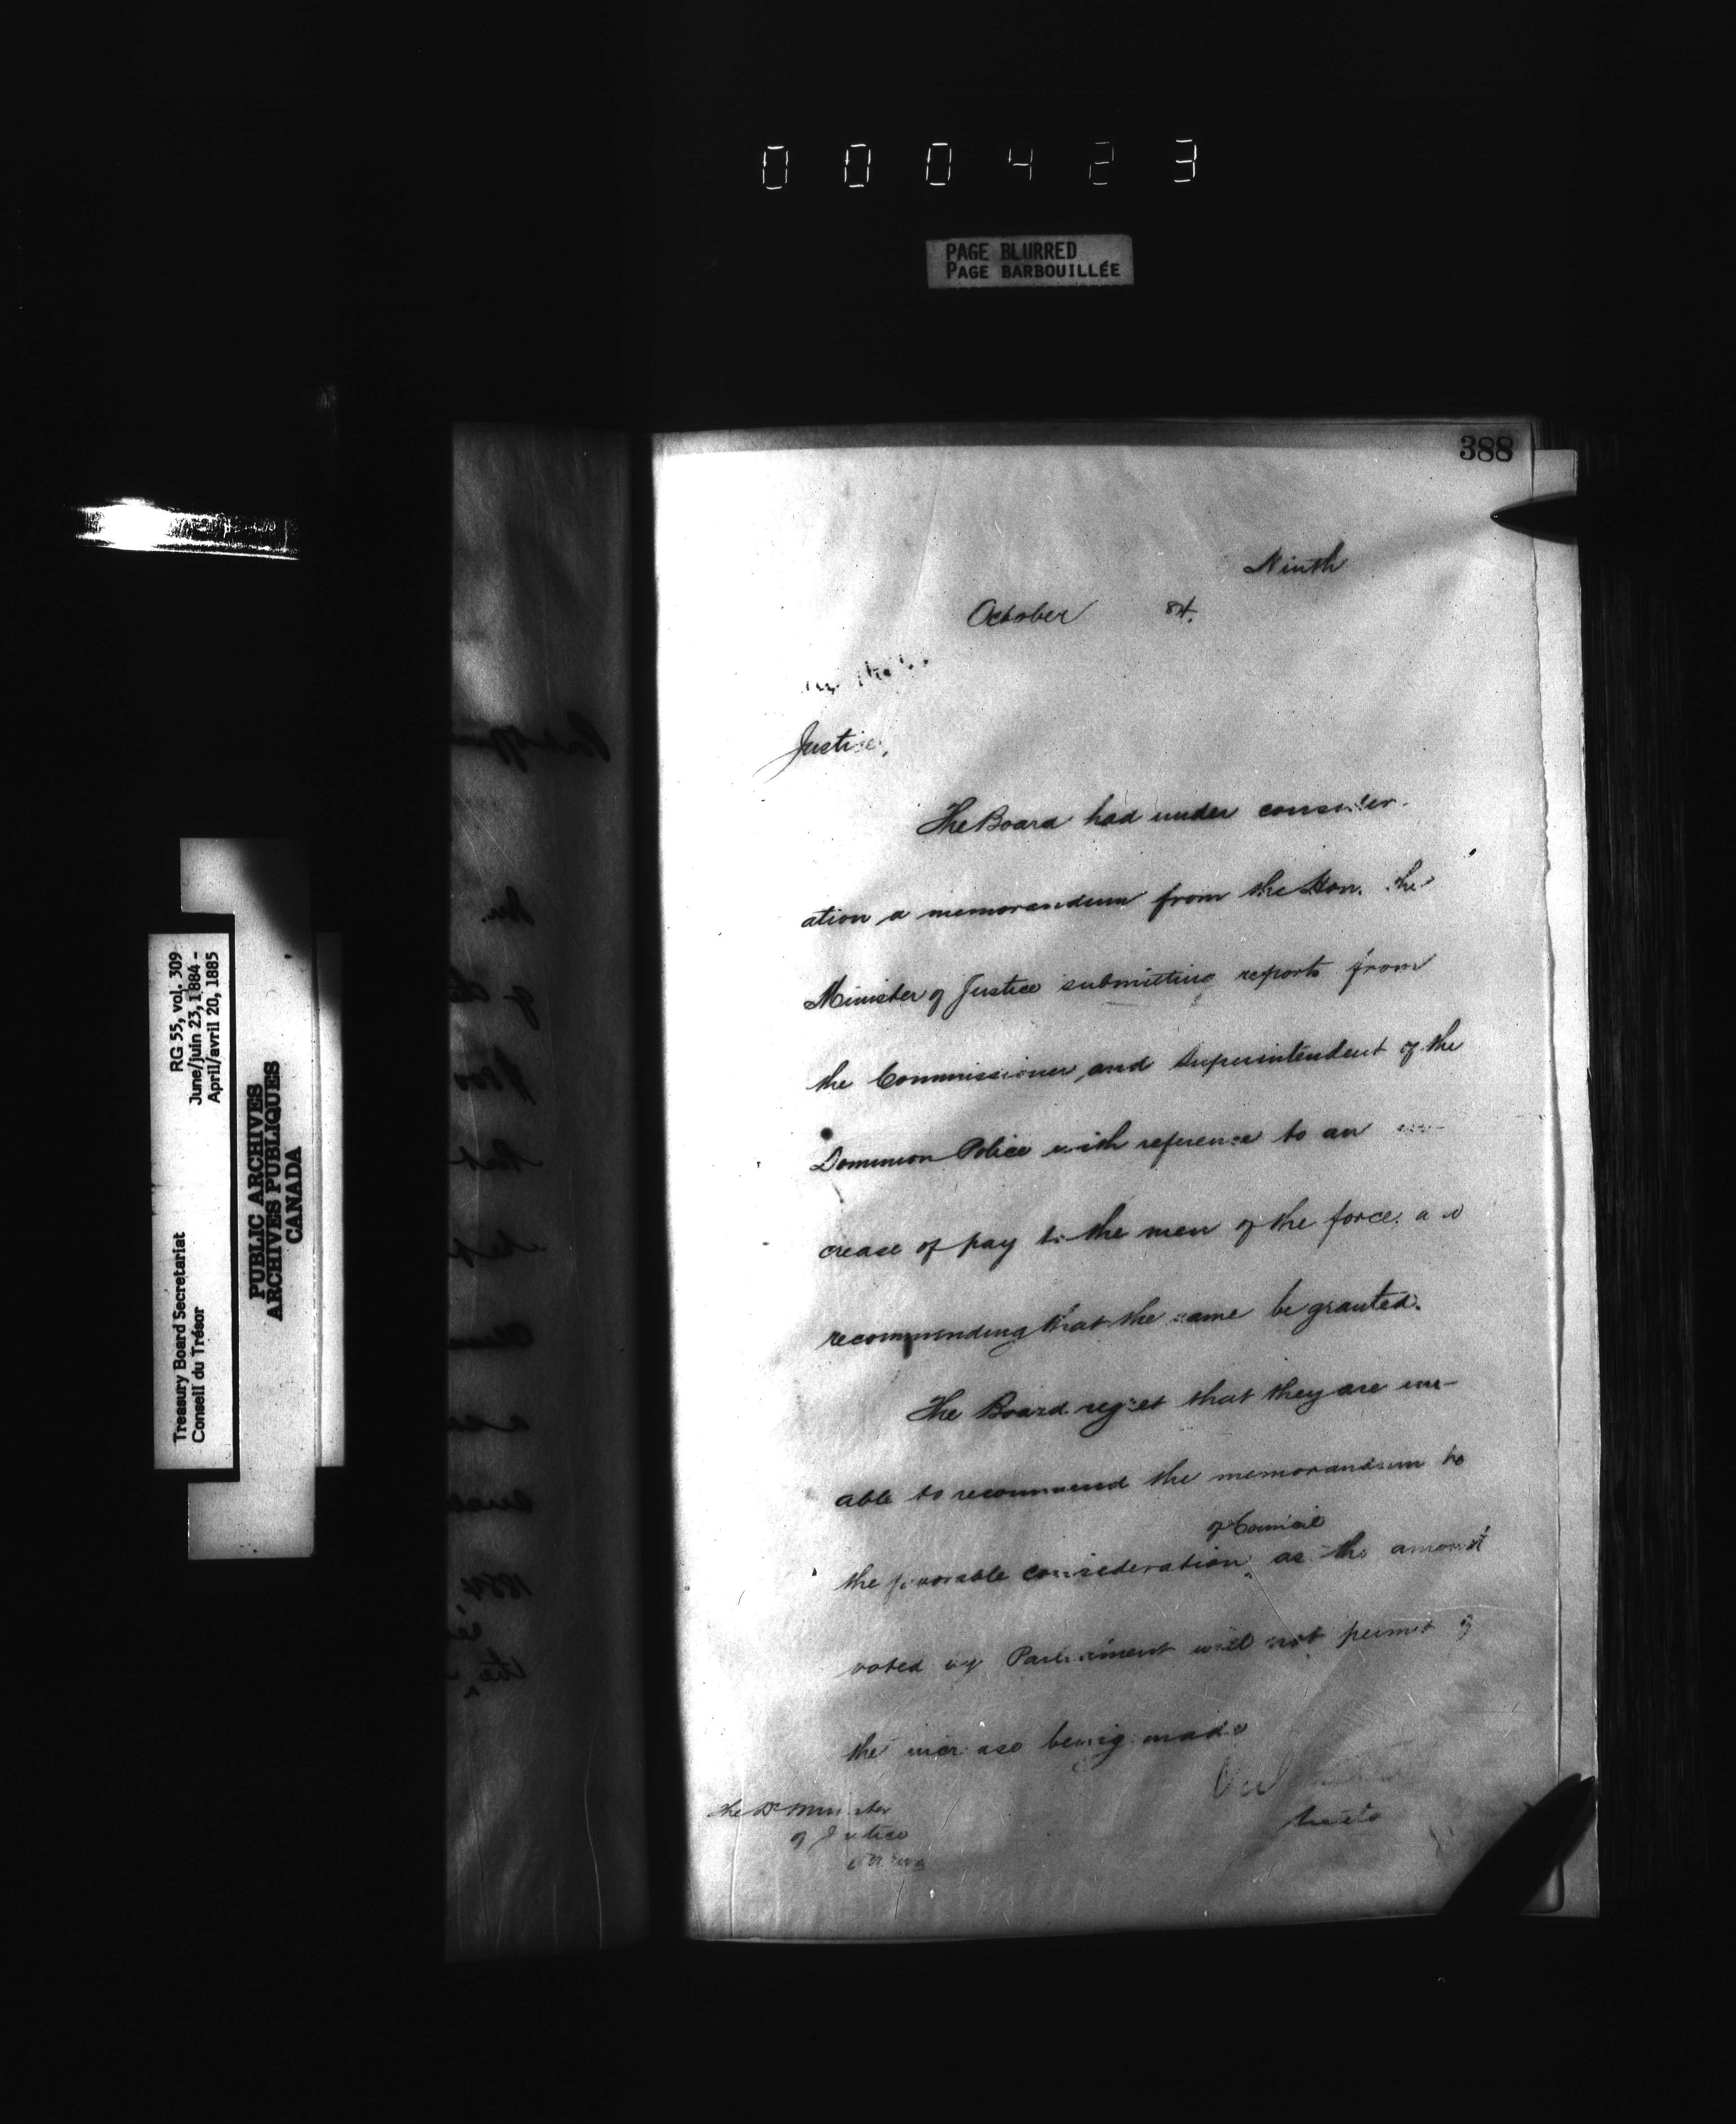 000423
PAGE BLURRED
PAGE BARBOUILLÉE
388
Ninth
October 84.
Justice,
The Board had under consider-
ation a memorandum from the Hon. the
Minister of Justice submitting reports from
the Commissioner, and Superintendent of the
Dominion Police with reference to an
crease of pay to the men of the force, and
recommending that the same be granted.
The Board regret that they are un-
able to recommend the memorandum to
of Council
the favorable consideration as the amount
voted by Parliament will not permit of
the increase being made
The D Minister
of Justice
Ottawa
RG 55, vol. 309
June/juin 23, 1884 -
April/avril 20, 1885
Treasury Board Secretariat
Conseil du Trésor
PUBLIC ARCHIVES
ARCHIVES PUBLIQUES
CANADA